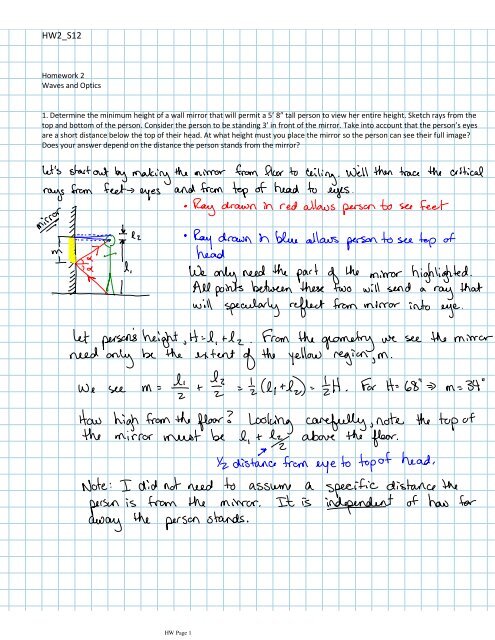 HW2_S12
Homework 2
Waves and Optics
1. Determine the minimum height of a wall mirror that will permit a 5' 8" tall person to view her entire height. Sketch rays from the
top and bottom of the person. Consider the person to be standing 3' in front of the mirror. Take into account that the person's eyes
are a short distance below the top of their head. At what height must you place the mirror so the person can see their full image?
Does your answer depend on the distance the person stands from the mirror?
Let's start out by making the mirror from floor to ceiling. We'll then trace the critical
rays from feet → eyes and from top of head to eyes.
mirror
m
α
α
l₂
l₁
• Ray drawn in red allows person to see feet
• Ray drawn in blue allows person to see top of
head
We only need the part of the mirror highlighted.
All points between these two will send a ray that
will specularly reflect from mirror into eye.
Let person's height, H = l₁ + l₂. From the geometry we see the mirror
need only be the extent of the yellow region, m.
We see m = l₁/2 + l₂/2 = ½(l₁+l₂) = ½H. For H = 68" ⇒ m = 34"
How high from the floor? Looking carefully, note the top of
the mirror must be l₁ + l₂/2 above the floor.
½ distance from eye to top of head.
Note: I did not need to assume a specific distance the
person is from the mirror. It is independent of how far
away the person stands.
HW Page 1